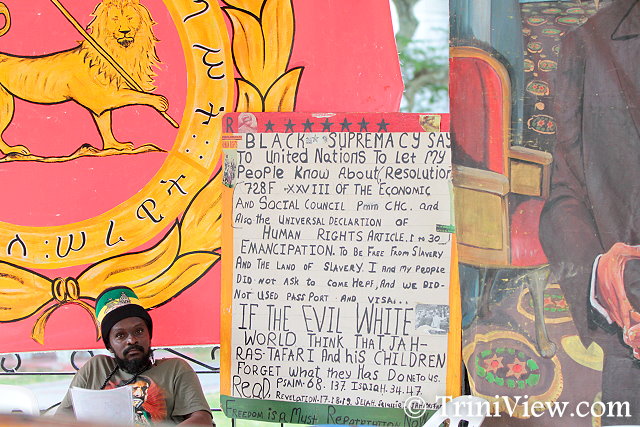 BLACK SUPREMACY SAY
To United Nations To Let My
People Know About, Resolution
728F -XXVIII OF THE ECONOMIC
AND SOCIAL COUNCIL Pmin CHC. and
Also the UNIVERSAL DECLARATION OF
HUMAN RIGHTS ARTICLE. I to 30
EMANCIPATION. TO BE FREE FROM SLAVERY
AND THE LAND OF SLAVERY. I and My PEOPLE
DID NOT ASK TO COME HERE, AND WE DID-
NOT USED PASSPORT AND VISA...
IF THE EVIL WHITE
WORLD THINK THAT JAH-
RAS-TAFARI AND his CHILDREN
FORGET WHAT they HAS DONE TO US.
READ PSALM. 68. 137. ISAIAH. 34. 47.
REVELATION.17.18.19. SELAH.
FREEDOM IS A MUST REPATRIATION NOW
© www.TriniView.com